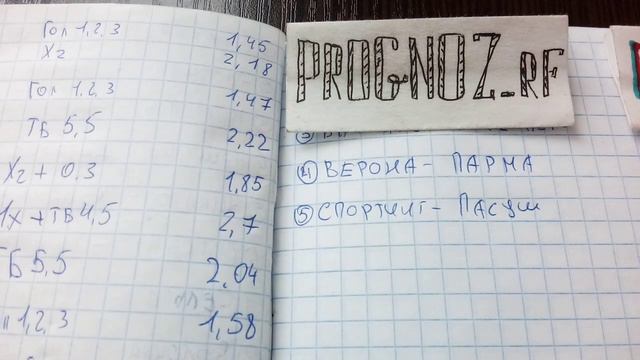 Гол 1,2,3 1,45
X2 2,18
Гол 1,2,3 1,47
ТБ 5,5 2,22
X2 + 0.3 1,85
1X + ТБ 4,5 2,7
ТБ 5,5 2.04
1,2,3 1,58
PROGNOZ_RF
③
④ ВЕРОНА - ПАРМА
⑤ СПОРТИНГ - ПАСУШ